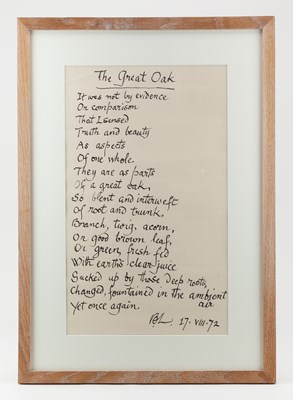 The Great Oak
It was not by evidence
Or comparison
That I sensed
Truth and beauty
As aspects
Of one whole.
They are as parts
Of a great oak,
So blent and interweft
Of root and trunk,
Branch, twig, acorn,
Or good brown leaf,
Or green, fresh fed
With earth's clear juice
Sucked up by those deep roots,
Changed, fountained in the ambient
air
Yet once again.
BL. 17-VIII-72